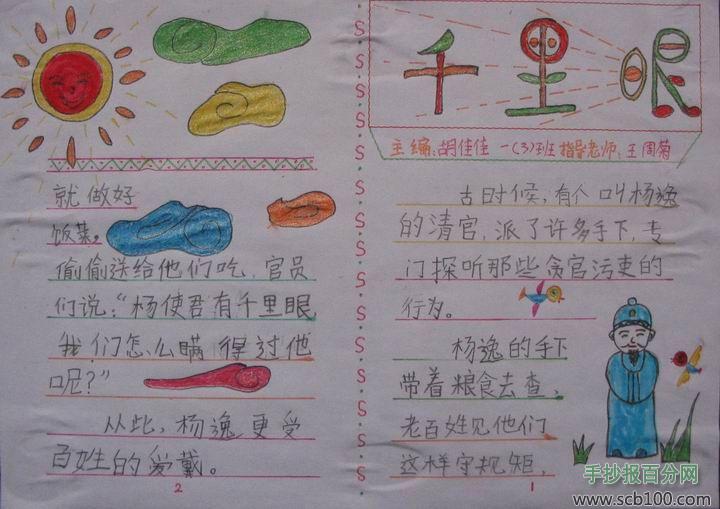 千里眼
主编：胡佳佳 一(3)班 指导老师：王周菊
古时候，有个叫杨逸
的清官，派了许多手下，专
门探听那些贪官污吏的
行为。
杨逸的手下
带着粮食去查，
老百姓见他们
这样守规矩，
1
就做好
饭菜。
偷偷送给他们吃，官员
们说：“杨使君有千里眼，
我们怎么瞒得过他
呢？”
从此，杨逸更受
百姓的爱戴。
2
手抄报百分网
www.scb100.com